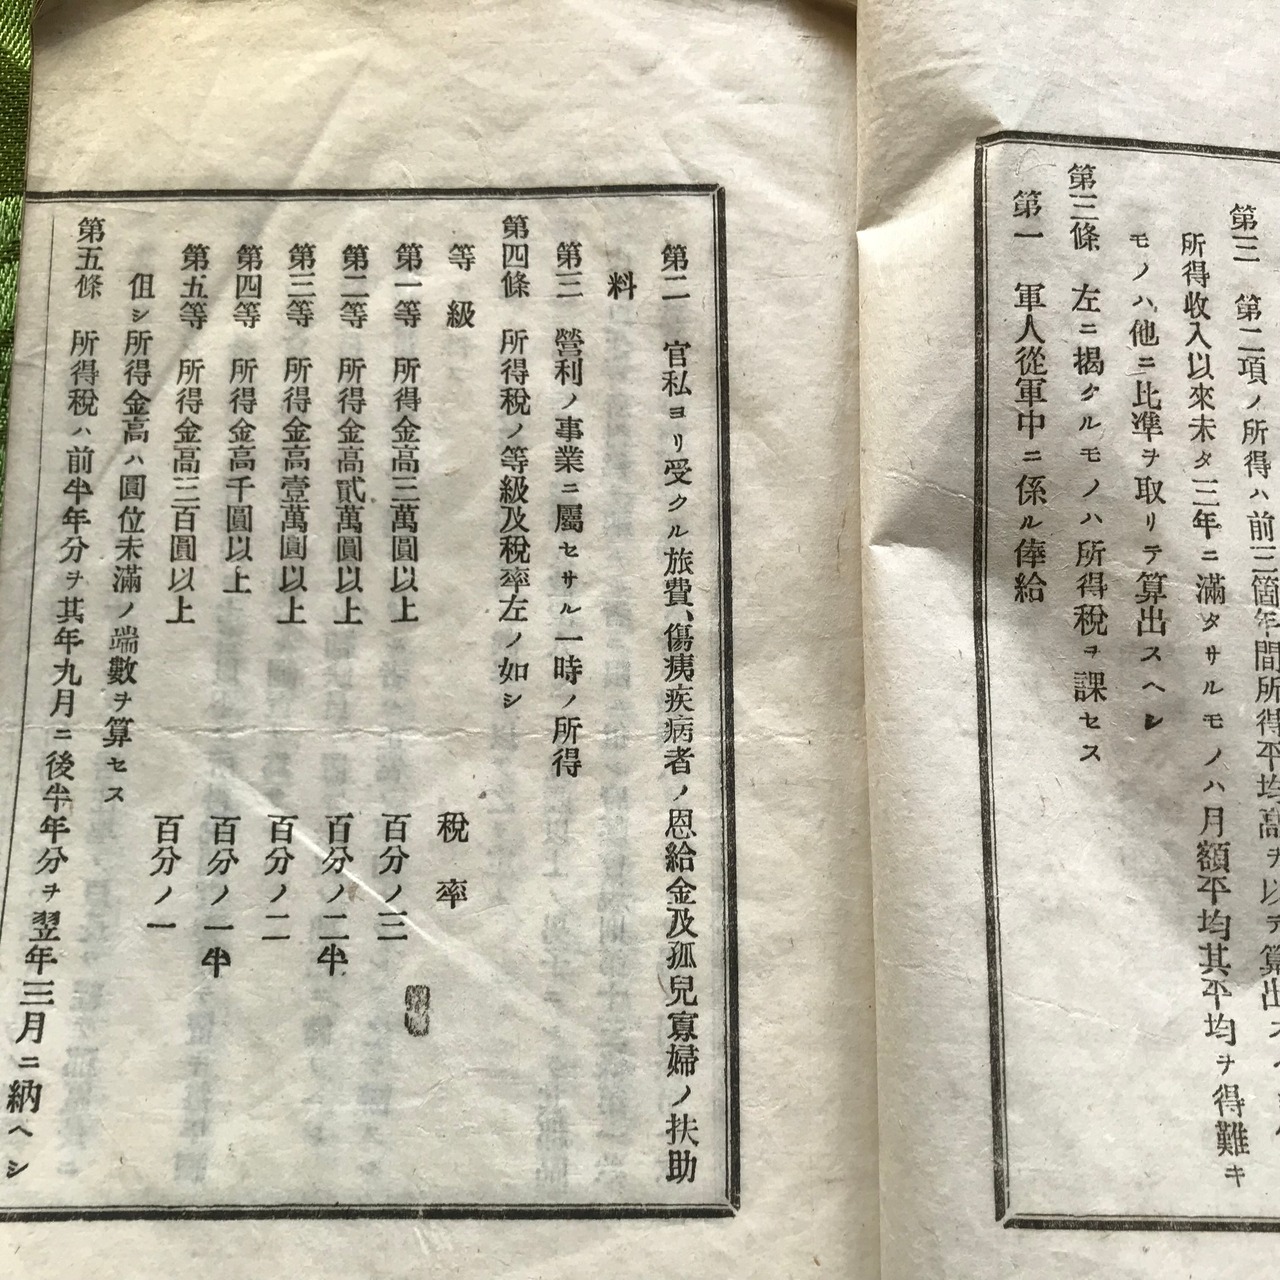 第三 第二項ノ所得ハ前三箇年間所得平均高ヲ以テ算出ス
所得收入以來未タ三年ニ滿タサルモノハ月額平均其平均ヲ得難キ
モノハ他ニ比準ヲ取リテ算出スヘシ
第三條 左ニ揭クルモノハ所得稅ヲ課セス
第一 軍人從軍中ニ係ル俸給
第二 官私ヨリ受クル旅費、傷痍疾病者ノ恩給金及孤兒寡婦ノ扶助
料
第三 營利ノ事業ニ屬セサル一時ノ所得
第四條 所得稅ノ等級及稅率左ノ如シ
等級 稅率
第一等 所得金高三萬圓以上 百分ノ三
第二等 所得金高貳萬圓以上 百分ノ二半
第三等 所得金高壹萬圓以上 百分ノ二
第四等 所得金高千圓以上 百分ノ一半
第五等 所得金高三百圓以上 百分ノ一
但シ所得金高ハ圓位未滿ノ端數ヲ算セス
第五條 所得稅ハ前半年分ヲ其年九月ニ後半年分ヲ翌年三月ニ納ヘシ